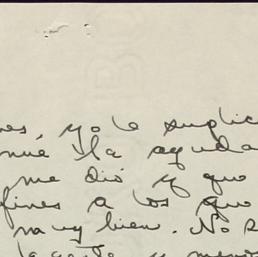 es, yo le suplic
nué la ayuda
me dió y que
fines a los que
muy bien. No s